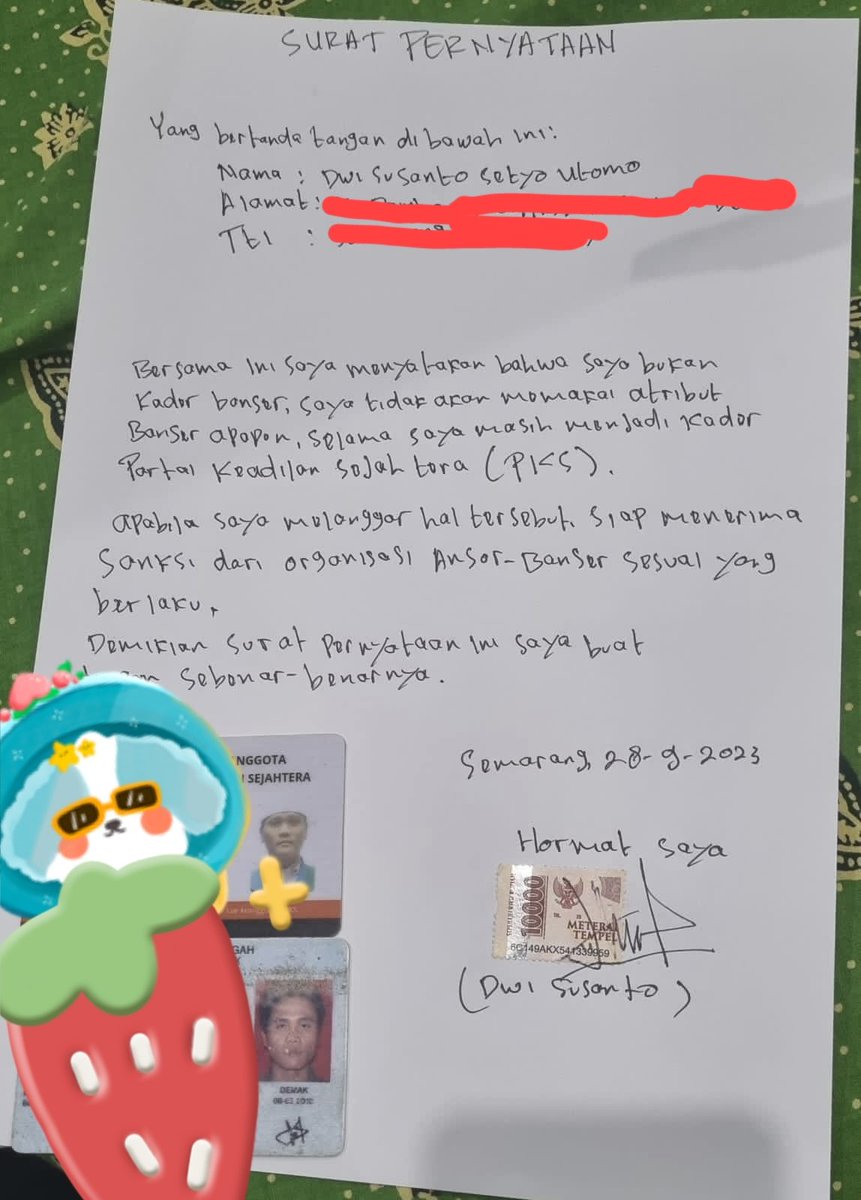 SURAT PERNYATAAN
Yang bertanda tangan di bawah ini:
Nama : Dwi Susanto Setyo Utomo
Alamat:
TEl :
Bersama ini saya menyatakan bahwa saya bukan
Kader banser, saya tidak akan memakai atribut
Banser apapun, selama saya masih menjadi Kader
Partai Keadilan Sejahtera (PKS).
Apabila saya melanggar hal tersebut, siap menerima
Sanksi dari organisasi Ansor-Banser sesuai yang
berlaku,
Demikian surat pernyataan ini saya buat
sebenar-benarnya.
NGGOTA
SEJAHTERA
Semarang, 28-9-2023
Hormat saya
10000
METERAI
TEMPEL
6C149AKX541339959
(Dwi Susanto)
GAH
DEMAK